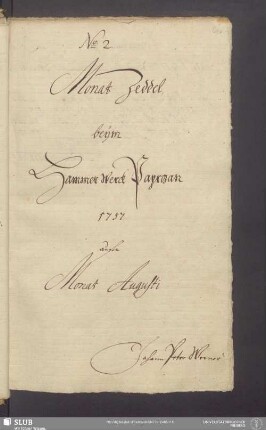 No 2
Monat Zeddel
beÿm
Hammer Werck Payrzan
1757
Monat Augusti
Johann Peter Werner
SLUB